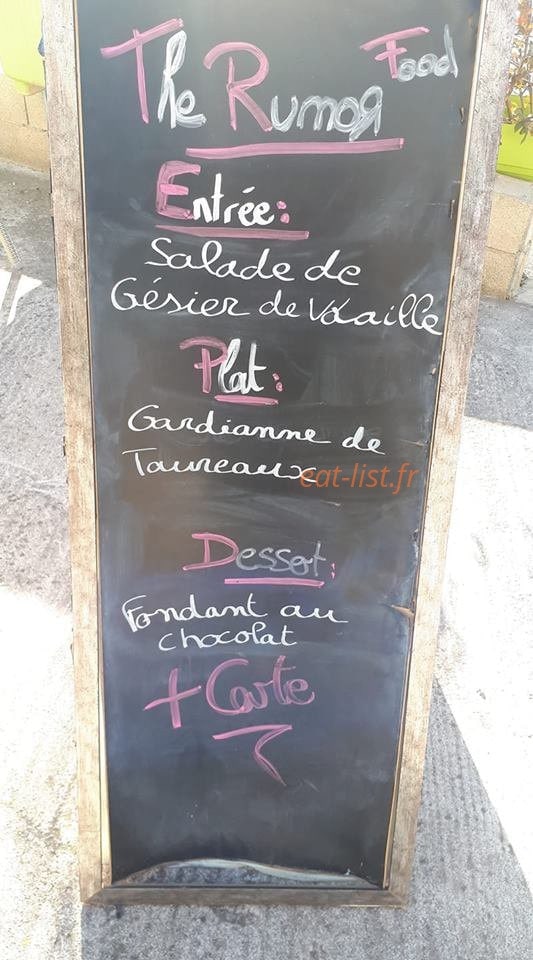 The Rumor Food
Entrée:
Salade de
Gésier de Volaille
Plat:
Gardianne de
Taureaux
eat-list.fr
Dessert:
Fondant au
chocolat
+ Carte